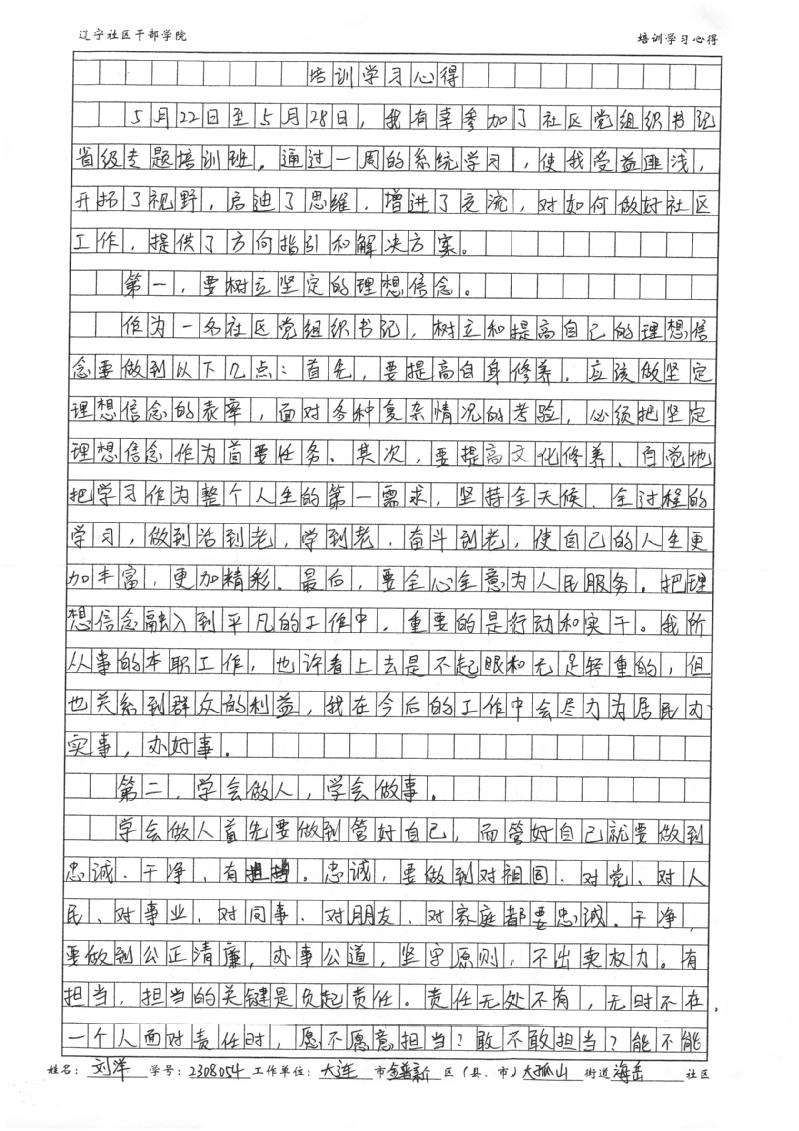 辽宁社区干部学院
培训学习心得
培训学习心得
5月22日至5月28日，我有幸参加了社区党组织书记
省级专题培训班。通过一周的系统学习，使我受益匪浅，
开拓了视野，启迪了思维，增进了交流，对如何做好社区
工作，提供了方向指引和解决方案。
第一，要树立坚定的理想信念。
作为一名社区党组织书记，树立和提高自己的理想信
念要做到以下几点：首先，要提高自身修养。应该做坚定
理想信念的表率，面对各种复杂情况的考验，必须把坚定
理想信念作为首要任务。其次，要提高文化修养。自觉地
把学习作为整个人生的第一需求，坚持全天候、全过程的
学习，做到活到老，学到老，奋斗到老，使自己的人生更
加丰富，更加精彩。最后，要全心全意为人民服务。把理
想信念融入到平凡的工作中，重要的是行动和实干。我所
从事的本职工作，也许看上去是不起眼和无足轻重的，但
也关系到群众的利益，我在今后的工作中会尽力为居民办
实事，办好事。
第二，学会做人，学会做事。
学会做人首先要做到管好自己，而管好自己就要做到
忠诚、干净、有担当。忠诚，要做到对祖国、对党、对人
民、对事业、对同事、对朋友、对家庭都要忠诚。干净，
要做到公正清廉，办事公道，坚守原则，不出卖权力。有
担当，担当的关键是负起责任。责任无处不有，无时不在，
一个人面对责任时，愿不愿意担当？敢不敢担当？能不能
姓名：刘洋 学号：2308054 工作单位：大连 市 金普新 区（县、市）大孤山 街道 海岳 社区